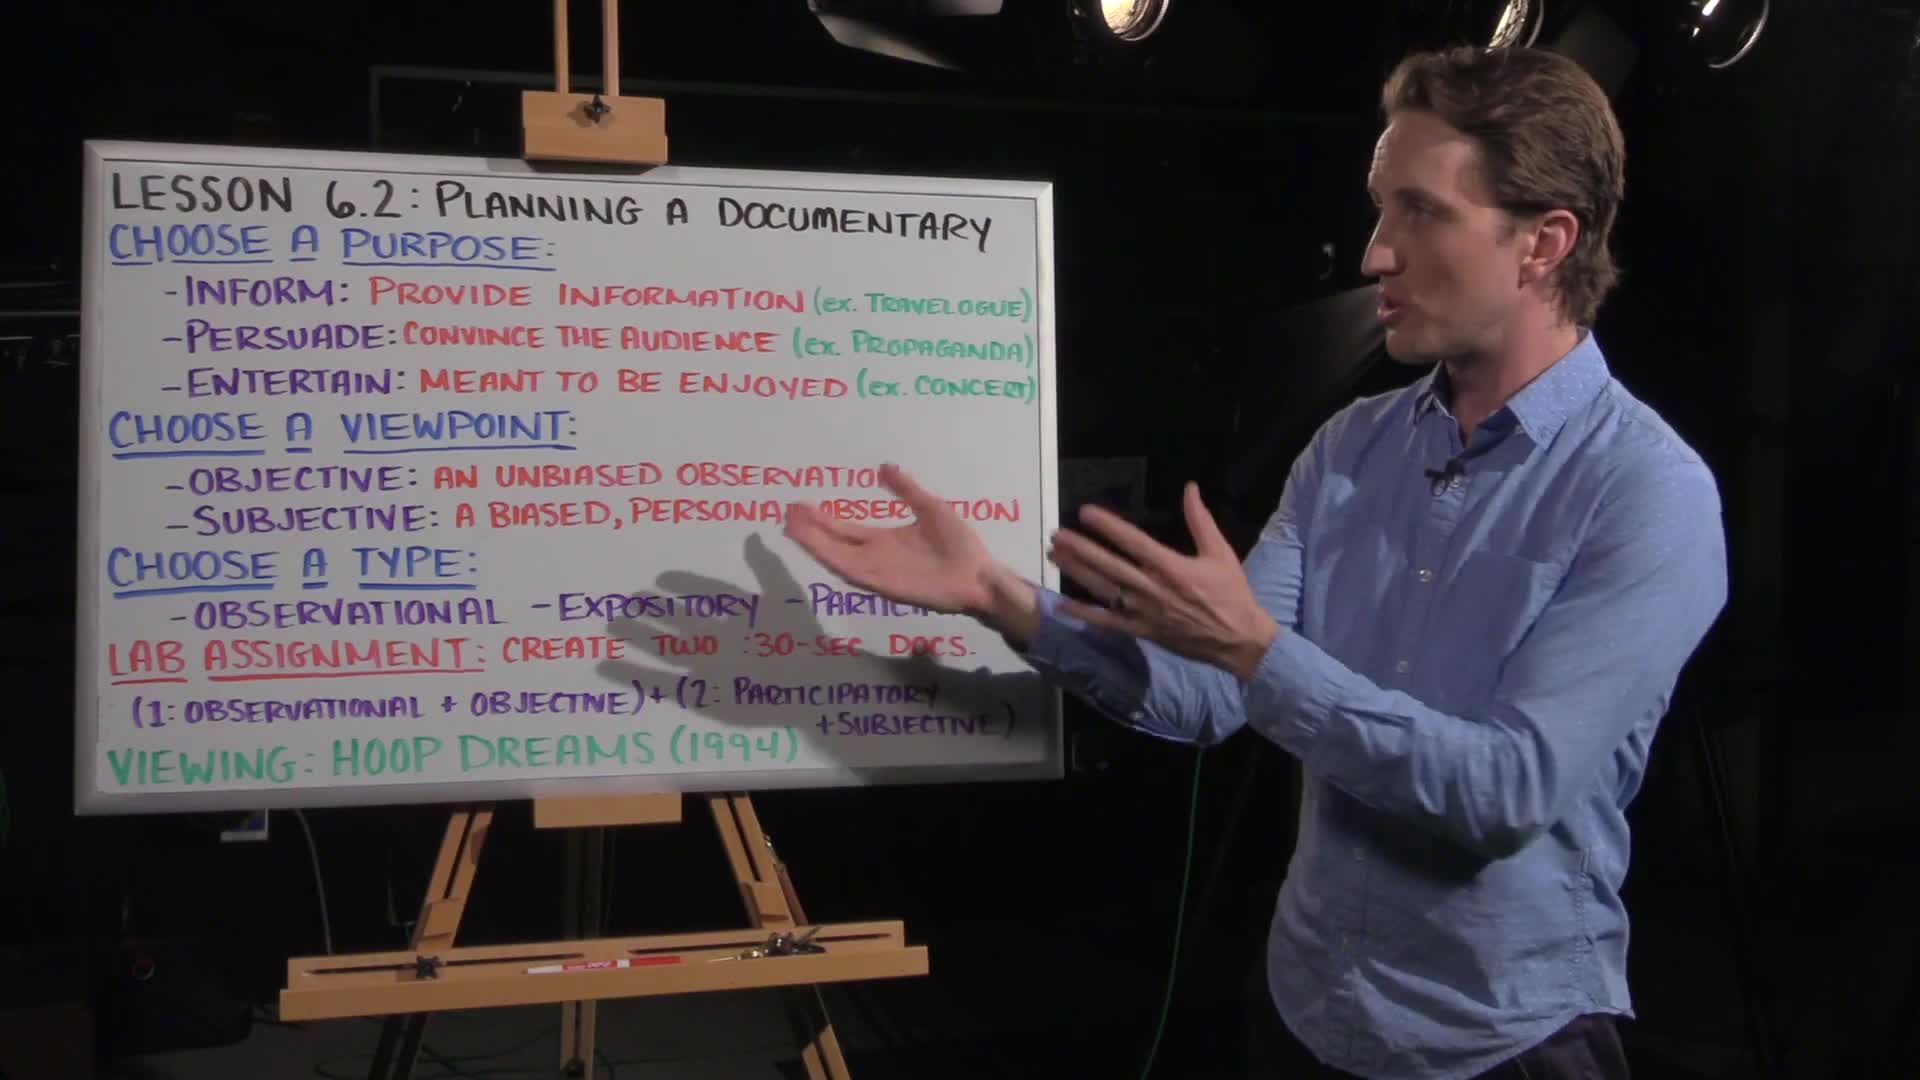 LESSON 6.2: PLANNING A DOCUMENTARY
CHOOSE A PURPOSE:
-INFORM: PROVIDE INFORMATION (ex. TRAVELOGUE)
-PERSUADE: CONVINCE THE AUDIENCE (ex. PROPAGANDA)
-ENTERTAIN: MEANT TO BE ENJOYED (ex. CONCERT)
CHOOSE A VIEWPOINT:
-OBJECTIVE: AN UNBIASED OBSERVATION
-SUBJECTIVE: A BIASED, PERSONAL OBSERVATION
CHOOSE A TYPE:
-OBSERVATIONAL -EXPOSITORY
LAB ASSIGNMENT: CREATE TWO :30-SEC DOCS.
(1: OBSERVATIONAL + OBJECTIVE) + (2: PARTICIPATORY
+SUBJECTIVE)
VIEWING: HOOP DREAMS (1994)